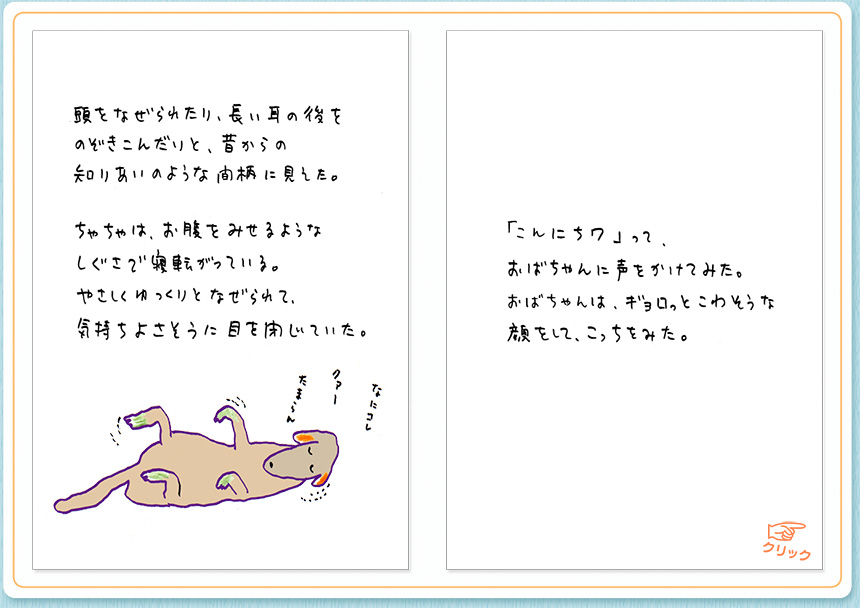 頭をなぜられたり、長い耳の後を
のぞきこんだりと、昔からの
知りあいのような間柄に見えた。
ちゃちゃは、お腹をみせるような
しぐさで寝転がっている。
やさしくゆっくりとなぜられて、
気持ちよさそうに目を閉じていた。
なにコレ
クァー
たまらん
「こんにちワ」って、
おばちゃんに声をかけてみた。
おばちゃんは、ギョロっとこわそうな
顔をして、こっちをみた。
クリック